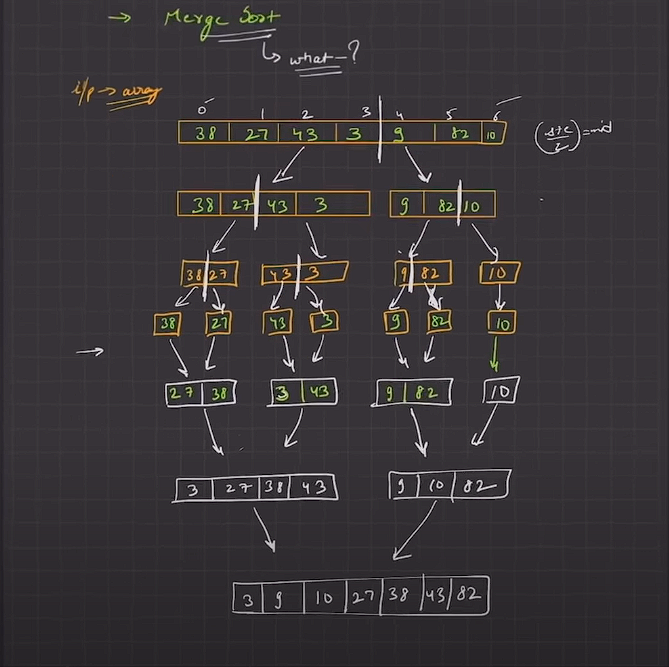 → Merge Sort
↳ what-?
i/p → array
0 1 2 3 4 5 6
38 27 43 3 9 82 10
(s+e/2) = mid
38 27 43 3 9 82 10
38 27 43 3 9 82 10
38 27 43 3 9 82 10
27 38 3 43 9 82 10
3 27 38 43 9 10 82
3 9 10 27 38 43 82